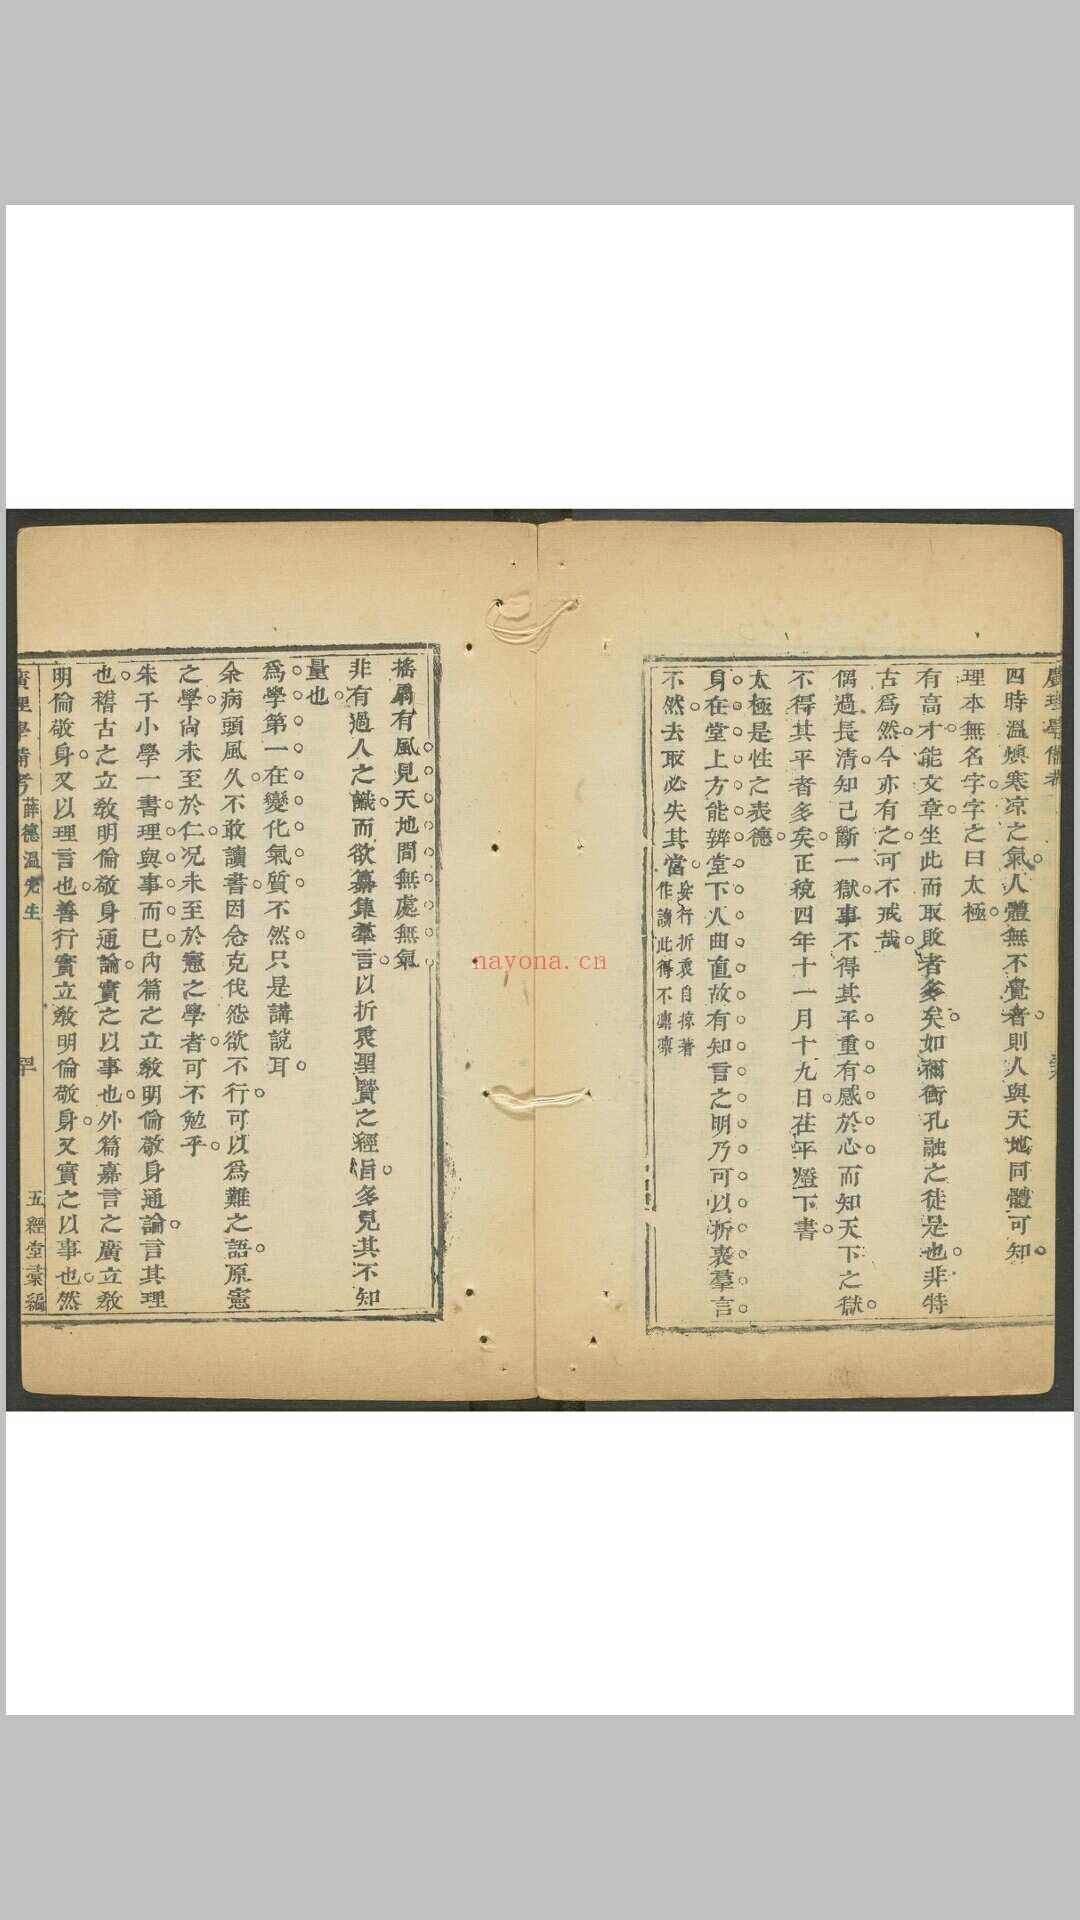 廣理學備考
四時溫燠寒凉之氣人體無不覺者則人與天地同體可知
理本無名字字之曰太極
有高才能文章坐此而取敗者多矣如禰衡孔融之徒是也非特
古爲然今亦有之可不戒哉
偶過長清知己斷一獄事不得其平重有感於心而知天下之獄
不得其平者多矣正統四年十一月十九日茌平燈下書
太極是性之表德
身在堂上方能辨堂下人曲直故有知言之明乃可以折衷羣言
不然去取必失其當
妄行折衷自掠著
作讀此得不凛凛
搖扇有風見天地間無處無氣
非有過人之識而欲纂集羣言以折衷聖賢之經旨多見其不知
量也
爲學第一在變化氣質不然只是講說耳
余病頭風久不敢讀書因念克伐怨欲不行可以爲難之語原憲
之學尚未至於仁况未至於憲之學者可不勉乎
朱子小學一書理與事而已內篇之立教明倫敬身通論言其理
也稽古之立教明倫敬身通論實之以事也外篇嘉言之廣立教
明倫敬身又以理言也善行實立教明倫敬身又實之以事也然
廣理學備考 薛德溫先生 五經堂彙編
nayona.cn